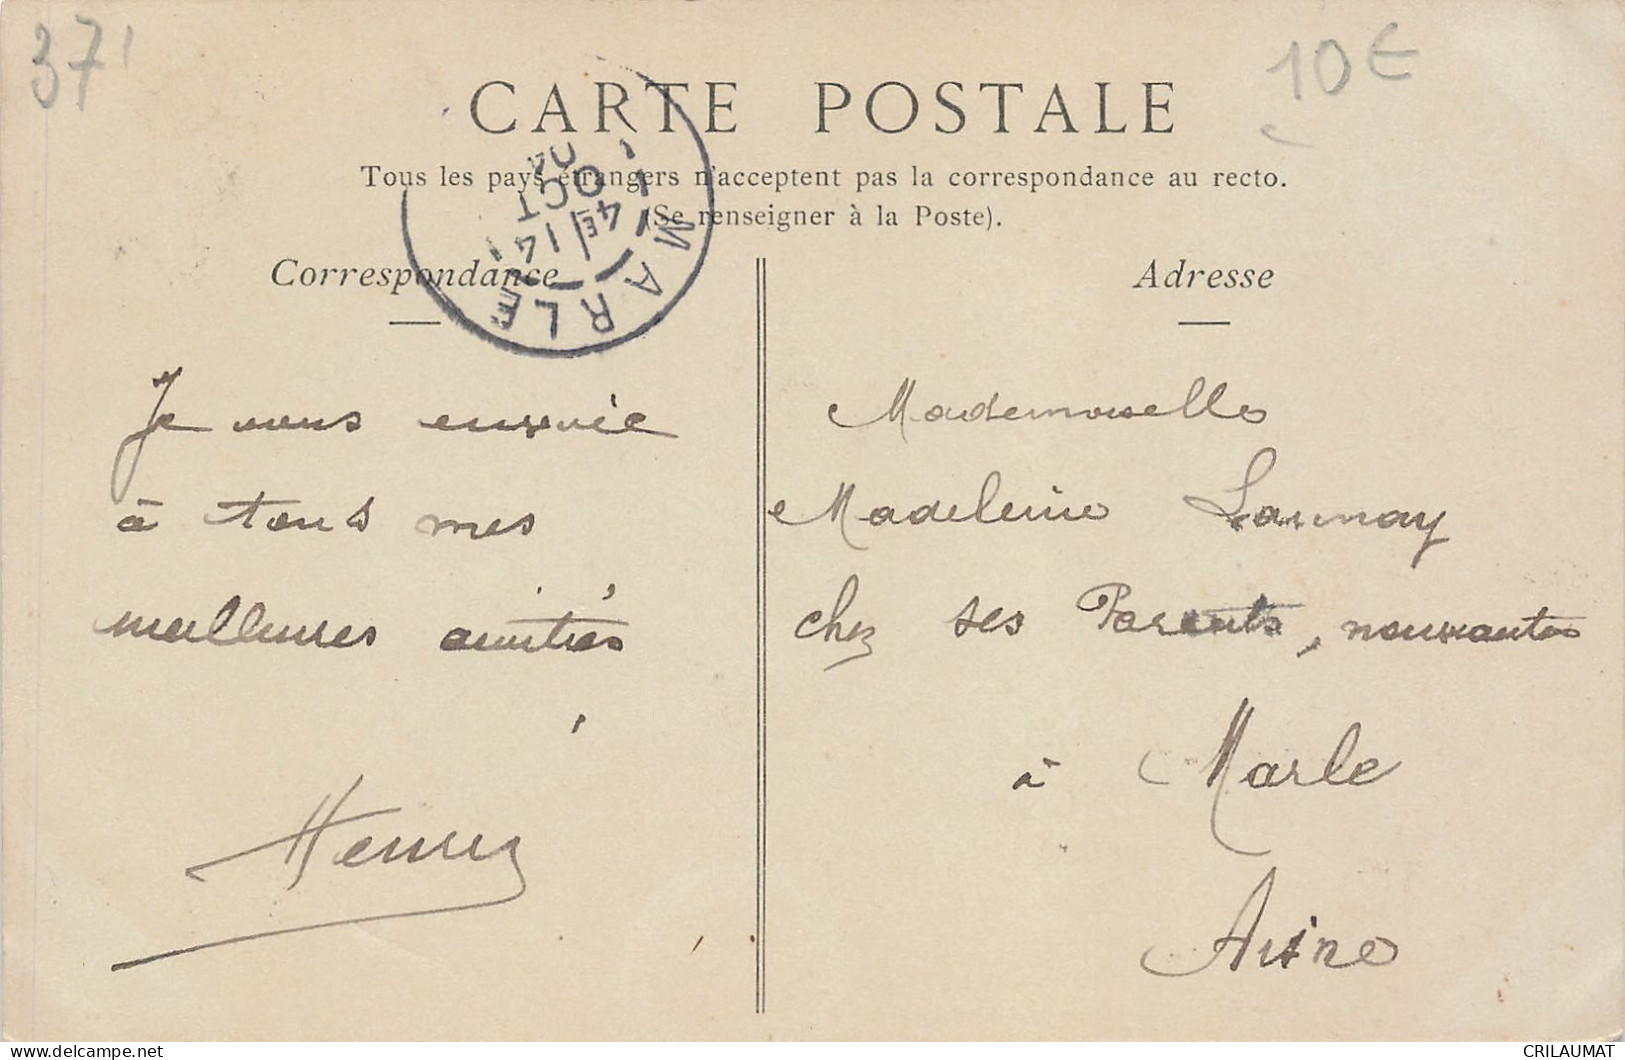 37
10€
CARTE POSTALE
Tous les pays étrangers n'acceptent pas la correspondance au recto.
(Se renseigner à la Poste).
MARLE
4E 14
OCT
04
Correspondance
Je vous envoie
à tous mes
meilleures amitiés
Henry
Adresse
Mademoiselle
Madeleine Launay
chez ses Parents, nouveautés
à Marle
Aisne
www.delcampe.net
CRILAUMAT